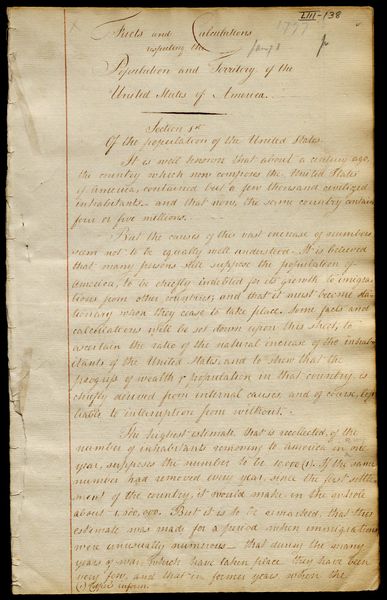 LIII-138
Facts and Calculations
1797
respecting the
Jany 1
Population and Territory of the
United States of America.
Section 1st
Of the population of the United States
It is well known that about a century ago,
the country which now composes the United States
of America, contained but a few thousand civilized
inhabitants - and that now, the same country contains
four or five millions.
But the causes of this vast increase of numbers
seem not to be equally well understood. It is believed
that many persons still suppose the population of
America, to be chiefly indebted for its growth to emigra-
tions from other countries; and that it must become sta-
tionary when they cease to take place. Some facts and
calculations will be set down upon this sheet, to
ascertain the ratio of the natural increase of the inhab-
itants of the United States, and to shew that the
progress of wealth & population in that country is
chiefly derived from internal causes and of course, less
liable to interruption from without.
The highest estimate that is recollected, of the
number of inhabitants removing to America in one
year, supposes the number to be 10,000 (1). If the same
number had removed every year, since the first settle-
ment of the country, it would make in the whole
about 1,600,000. But it is to be remarked, that this
estimate was made for a period when immigrations
were unusually numerous - that during the many
years of war, which have taken place they have been
very few, and that in former years when the
(1) Cooper inform.